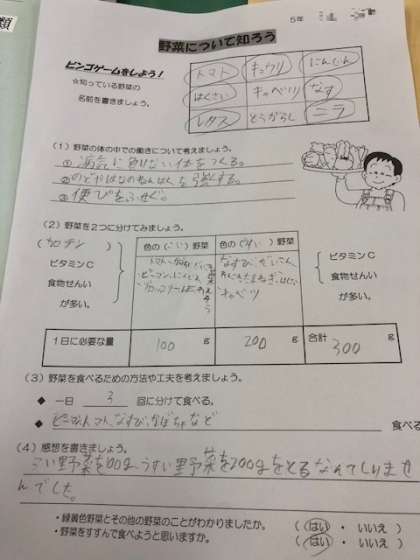 類
5年
野菜について知ろう
ビンゴゲームをしよう！
☆知っている野菜の
名前を書きましょう。
トマト きゅうり にんじん
はくさい キャベツ なす
レタス とうがらし ニラ
（1）野菜の体の中での働きについて考えましょう。
① 病気に負けない体をつくる。
② のどやはなのねんまくを強くする。
③ 便ぴをふせぐ。
（2）野菜を2つに分けてみましょう。
（カロチン）
ビタミンC
食物せんい
が多い。
色の（こい）野菜 色の（うすい）野菜
トマト
ピーマン、にんじん
なすび、だいこん
キャベツ
ビタミンC
食物せんい
が多い。
1日に必要な量 100 g 200 g 合計 300 g
（3）野菜を食べるための方法や工夫を考えましょう。
◆ 一日 3 回に分けて食べる。
◆ ピーマン、トマト、なすび、かぼちゃなど 食べる
（4）感想を書きましょう。
こい野菜を100g、うすい野菜を200gをとるなんてしりませ
んでした。
・緑黄色野菜とその他の野菜のことがわかりましたか。 （はい ・ いいえ）
・野菜をすすんで食べようと思いますか。 （はい ・ いいえ）